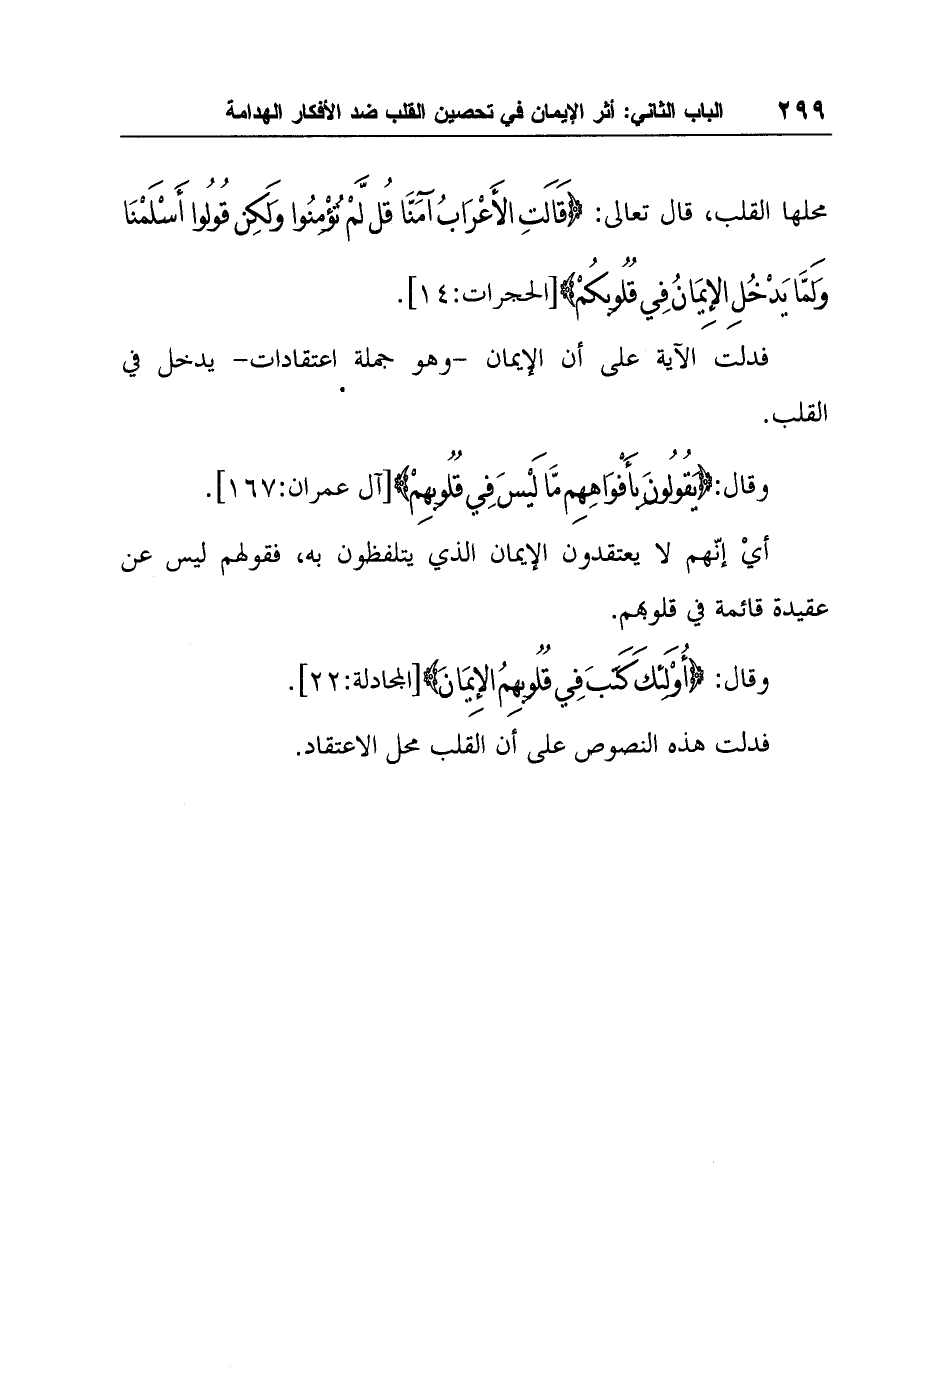 ٢٩٩ الباب الثاني: أثر الإيمان في تحصين القلب ضد الأفكار الهدامة
محلها القلب، قال تعالى: ﴿قَالَتِ الأَعْرَابُ آمَنَّا قُل لَّمْ تُؤْمِنُوا وَلَكِن قُولُوا أَسْلَمْنَا
وَلَمَّا يَدْخُلِ الإِيمَانُ فِي قُلُوبِكُمْ﴾[الحجرات:١٤].
فدلت الآية على أن الإيمان -وهو جملة اعتقادات- يدخل في
القلب.
وقال:﴿يَقُولُونَ بِأَفْوَاهِهِم مَّا لَيْسَ فِي قُلُوبِهِمْ﴾[آل عمران:١٦٧].
أيْ إنّهم لا يعتقدون الإيمان الذي يتلفظون به، فقولهم ليس عن
عقيدة قائمة في قلوبهم.
وقال: ﴿أُوْلَئِكَ كَتَبَ فِي قُلُوبِهِمُ الإِيمَانَ﴾[المجادلة:٢٢].
فدلت هذه النصوص على أن القلب محل الاعتقاد.